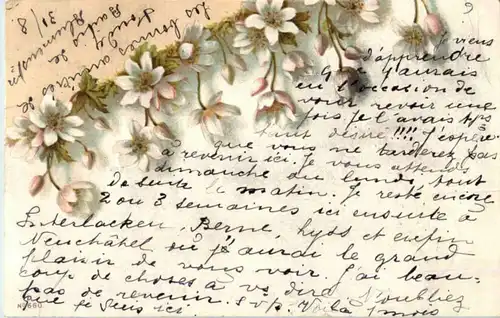 Les bonnes amitiés de
Blumenstein 30/8
9
Je viens
d'apprendre
que j'aurais
eu l'occasion de
vous revoir une
fois, je l'avais tps
tant désiré!!!! J'espère
que vous ne tarderez pas
à revenir ici. Je vous attends
dimanche ou lundi, tout
de suite le matin. Je reste encore
2 ou 3 semaines ici ensuite à
Interlacken, Berne, Lyss et enfin
Neuchâtel où j'aurai le grand
plaisir de vous voir. J'ai beau-
coup de choses à vs dire. N'oubliez
pas de revenir. s.v.p. Voilà 1 mois
que je suis ici.
No 660